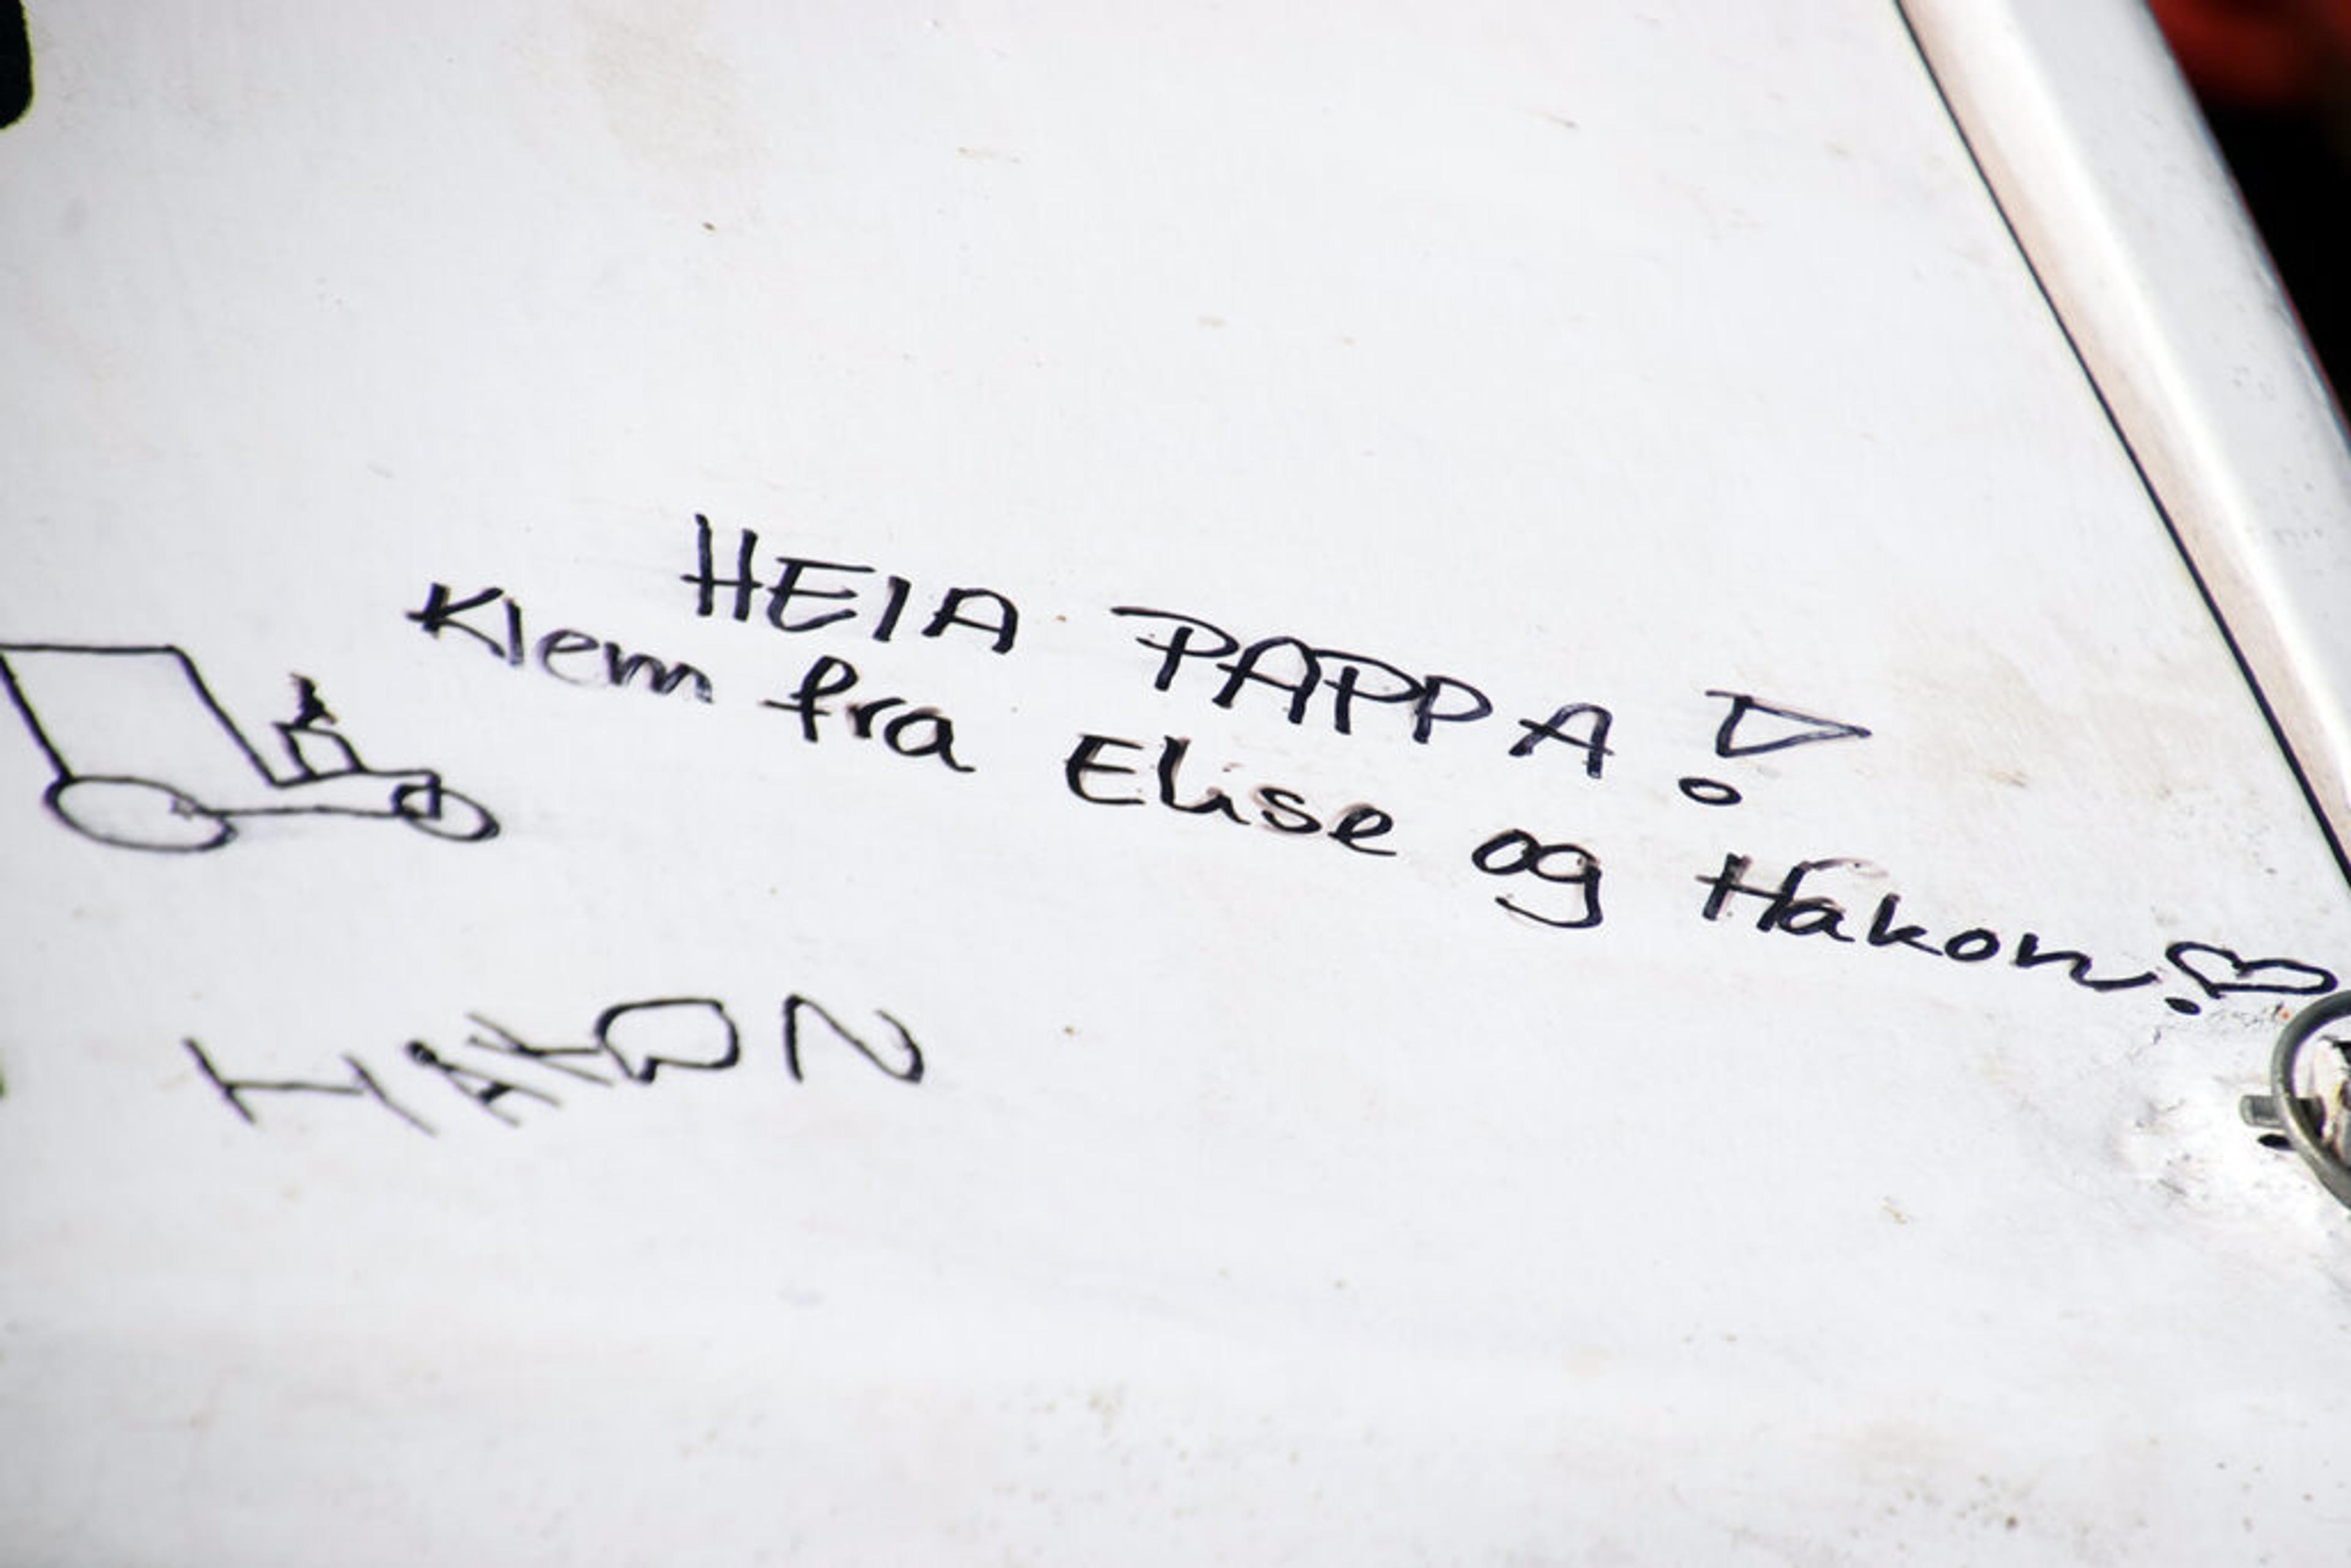 HEIA PAPPA!
Klem fra Elise og Håkon! ♡
HÅKON